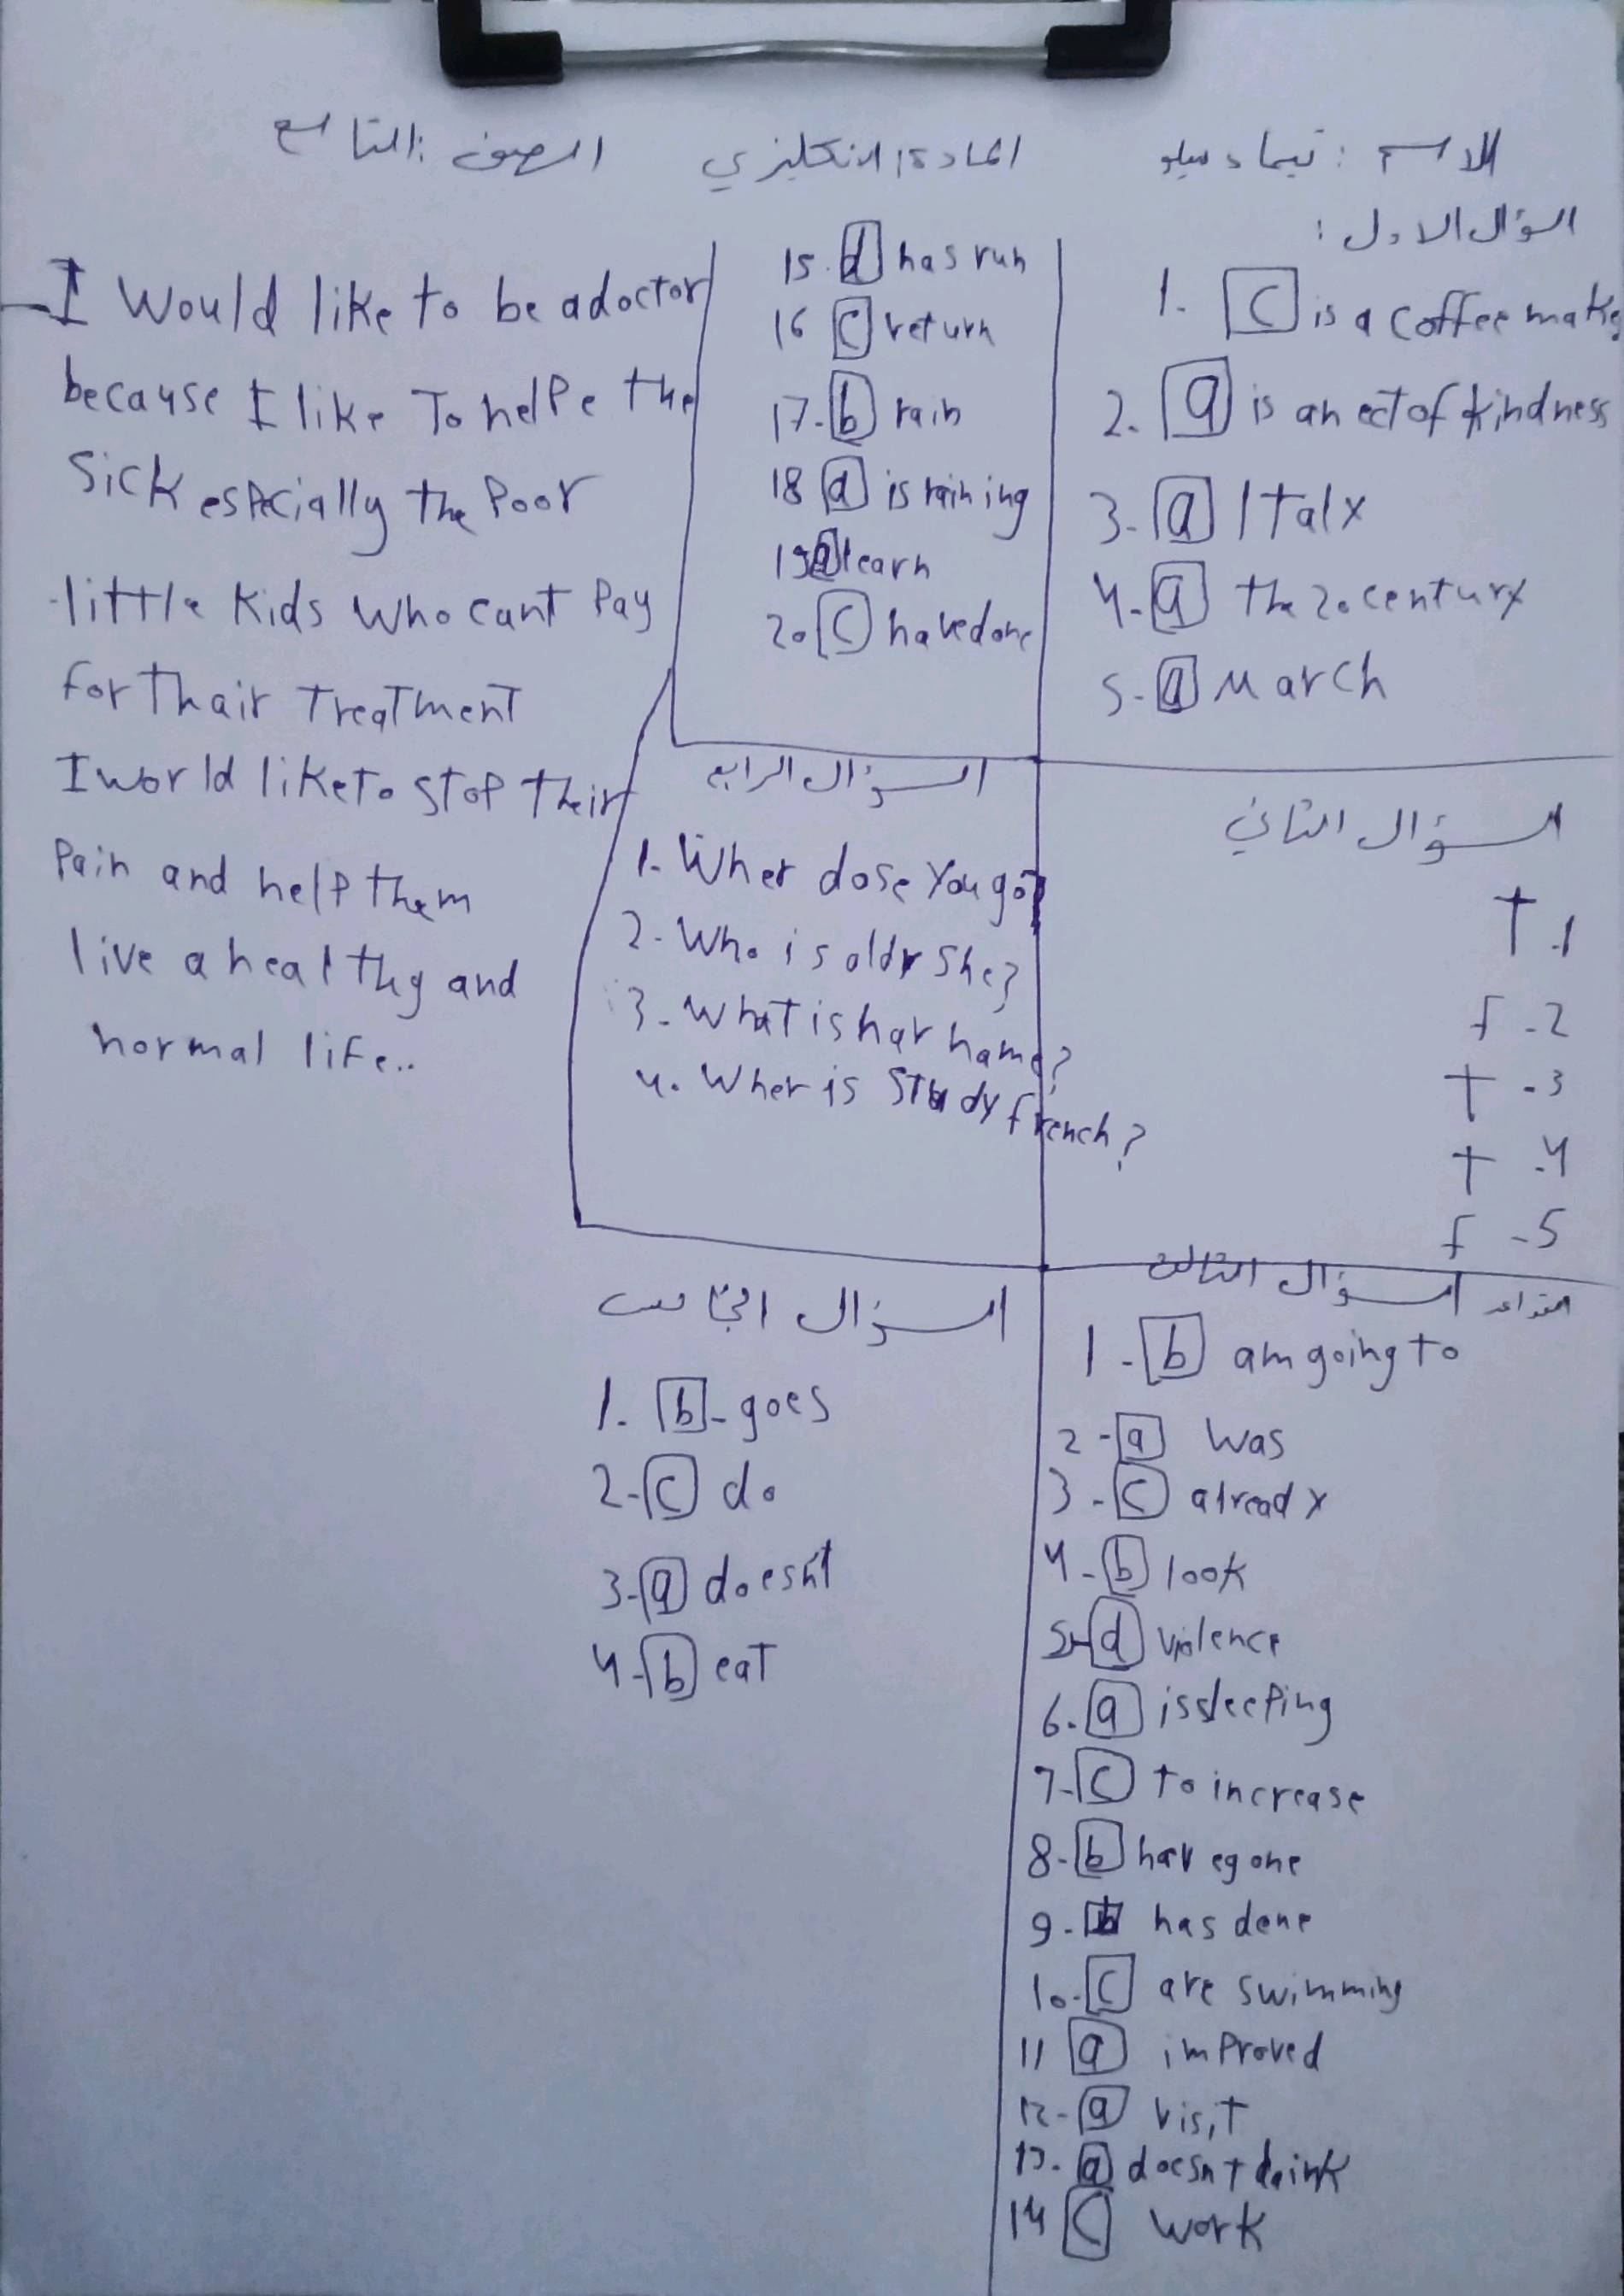 الاسم : تيماء ميلو
المادة: الانكليزي
الصف : التاسع
السؤال الاول :
1. c is a coffee make
2. a is an ect of kindness
3- a Italy
4- a the 20 century
5- a March
السؤال الثاني
1- T
2- f
3- T
4- T
5- f
السؤال الثالث
1- b am going to
2- a was
3- c already
4- b look
5- d violence
6. a is sleeping
7- c to increase
8- b have gone
9- b has done
10- c are swimming
11 a improved
12- a visit
13- a doesnt drink
14 c work
15. d has run
16 c return
17- b rain
18 a is raining
19 a learn
20 c have done
السؤال الرابع
1- Wher dose You go?
2- Who is oldr She?
3- What is har name?
4. Wher is Study french?
السؤال الخامس
1. b- goes
2- c do
3- a doesn't
4- b eat
I Would like to be a doctor
because I like To helpe the
Sick especially the Poor
little kids who cant Pay
for thair Treatment
I world like to stop their
Pain and help them
live a healthy and
normal life..